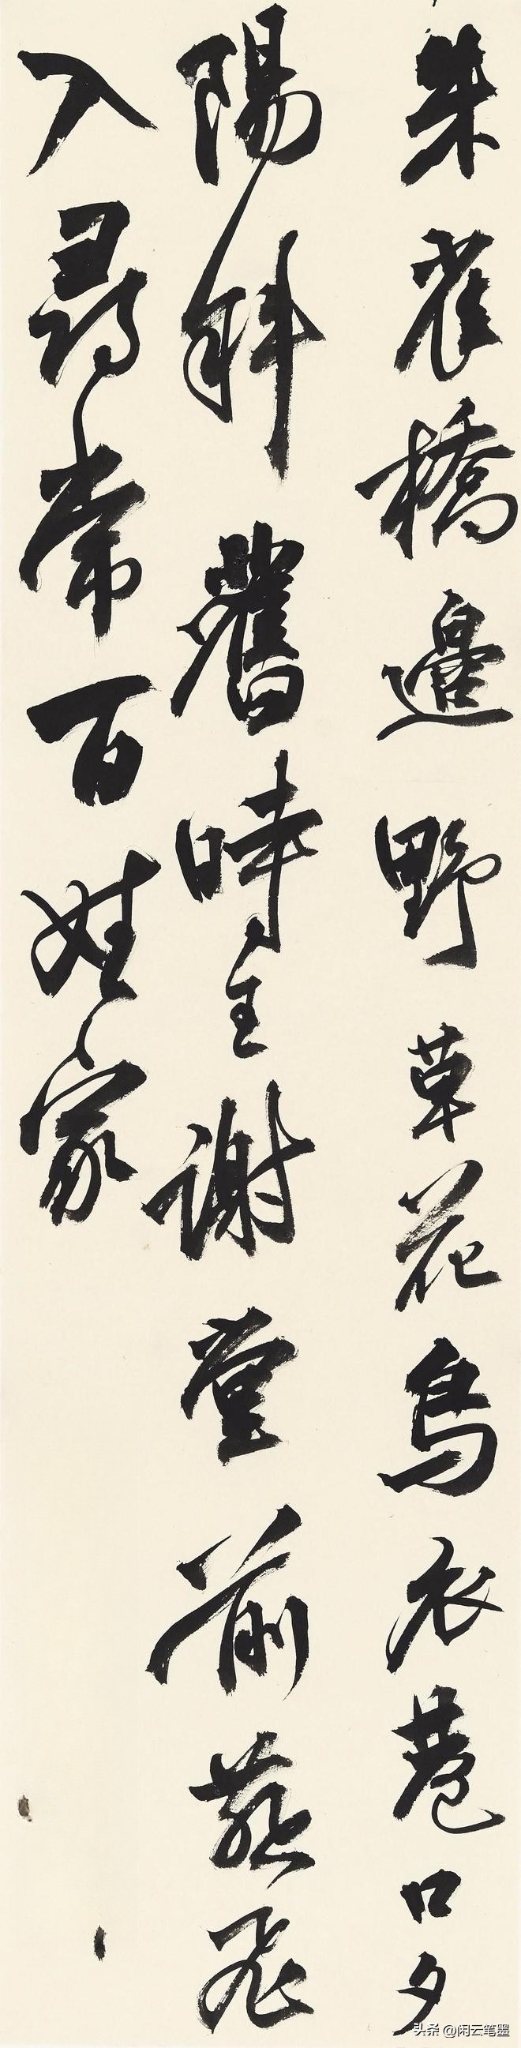 朱雀橋邊野草花烏衣巷口夕
陽斜舊時王謝堂前燕飛
入尋常百姓家
头条 @闲云笔墨